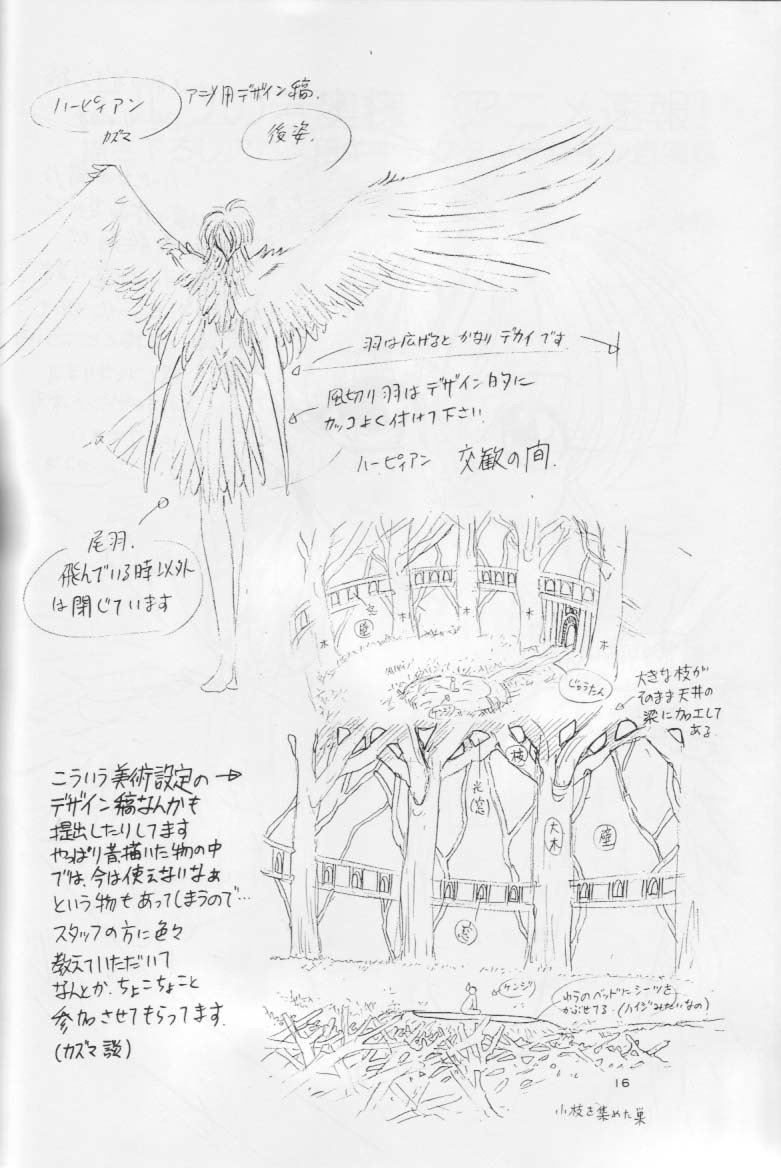 ハーピィアン
カズマ
アニメ用デザイン稿.
後姿.
羽は広げると かなり デカイです
風切り羽はデザイン的に
カッコよく付けて下さい.
ハーピィアン 交歓の間.
尾羽.
飛んでいる時以外
は閉じています
窓
壁
木
木
木
木
じゅうたん
ケンジ
大きな枝が
そのまま天井の
梁に加工して
ある
枝
光(窓)
大木
壁
窓
こういう美術設定の→
デザイン稿なんかも
提出したりしてます
やっぱり昔描いた物の中
では、今は使えないなぁ
という物もあってしまうので…
スタッフの方に色々
教えていただいて
なんとか、ちょこちょこと
参加させてもらってます.
(カズマ談)
ケンジ
わらのベッドにシーツを
かぶせてる.(ハイジみたいなの)
16
小枝を集めた巣